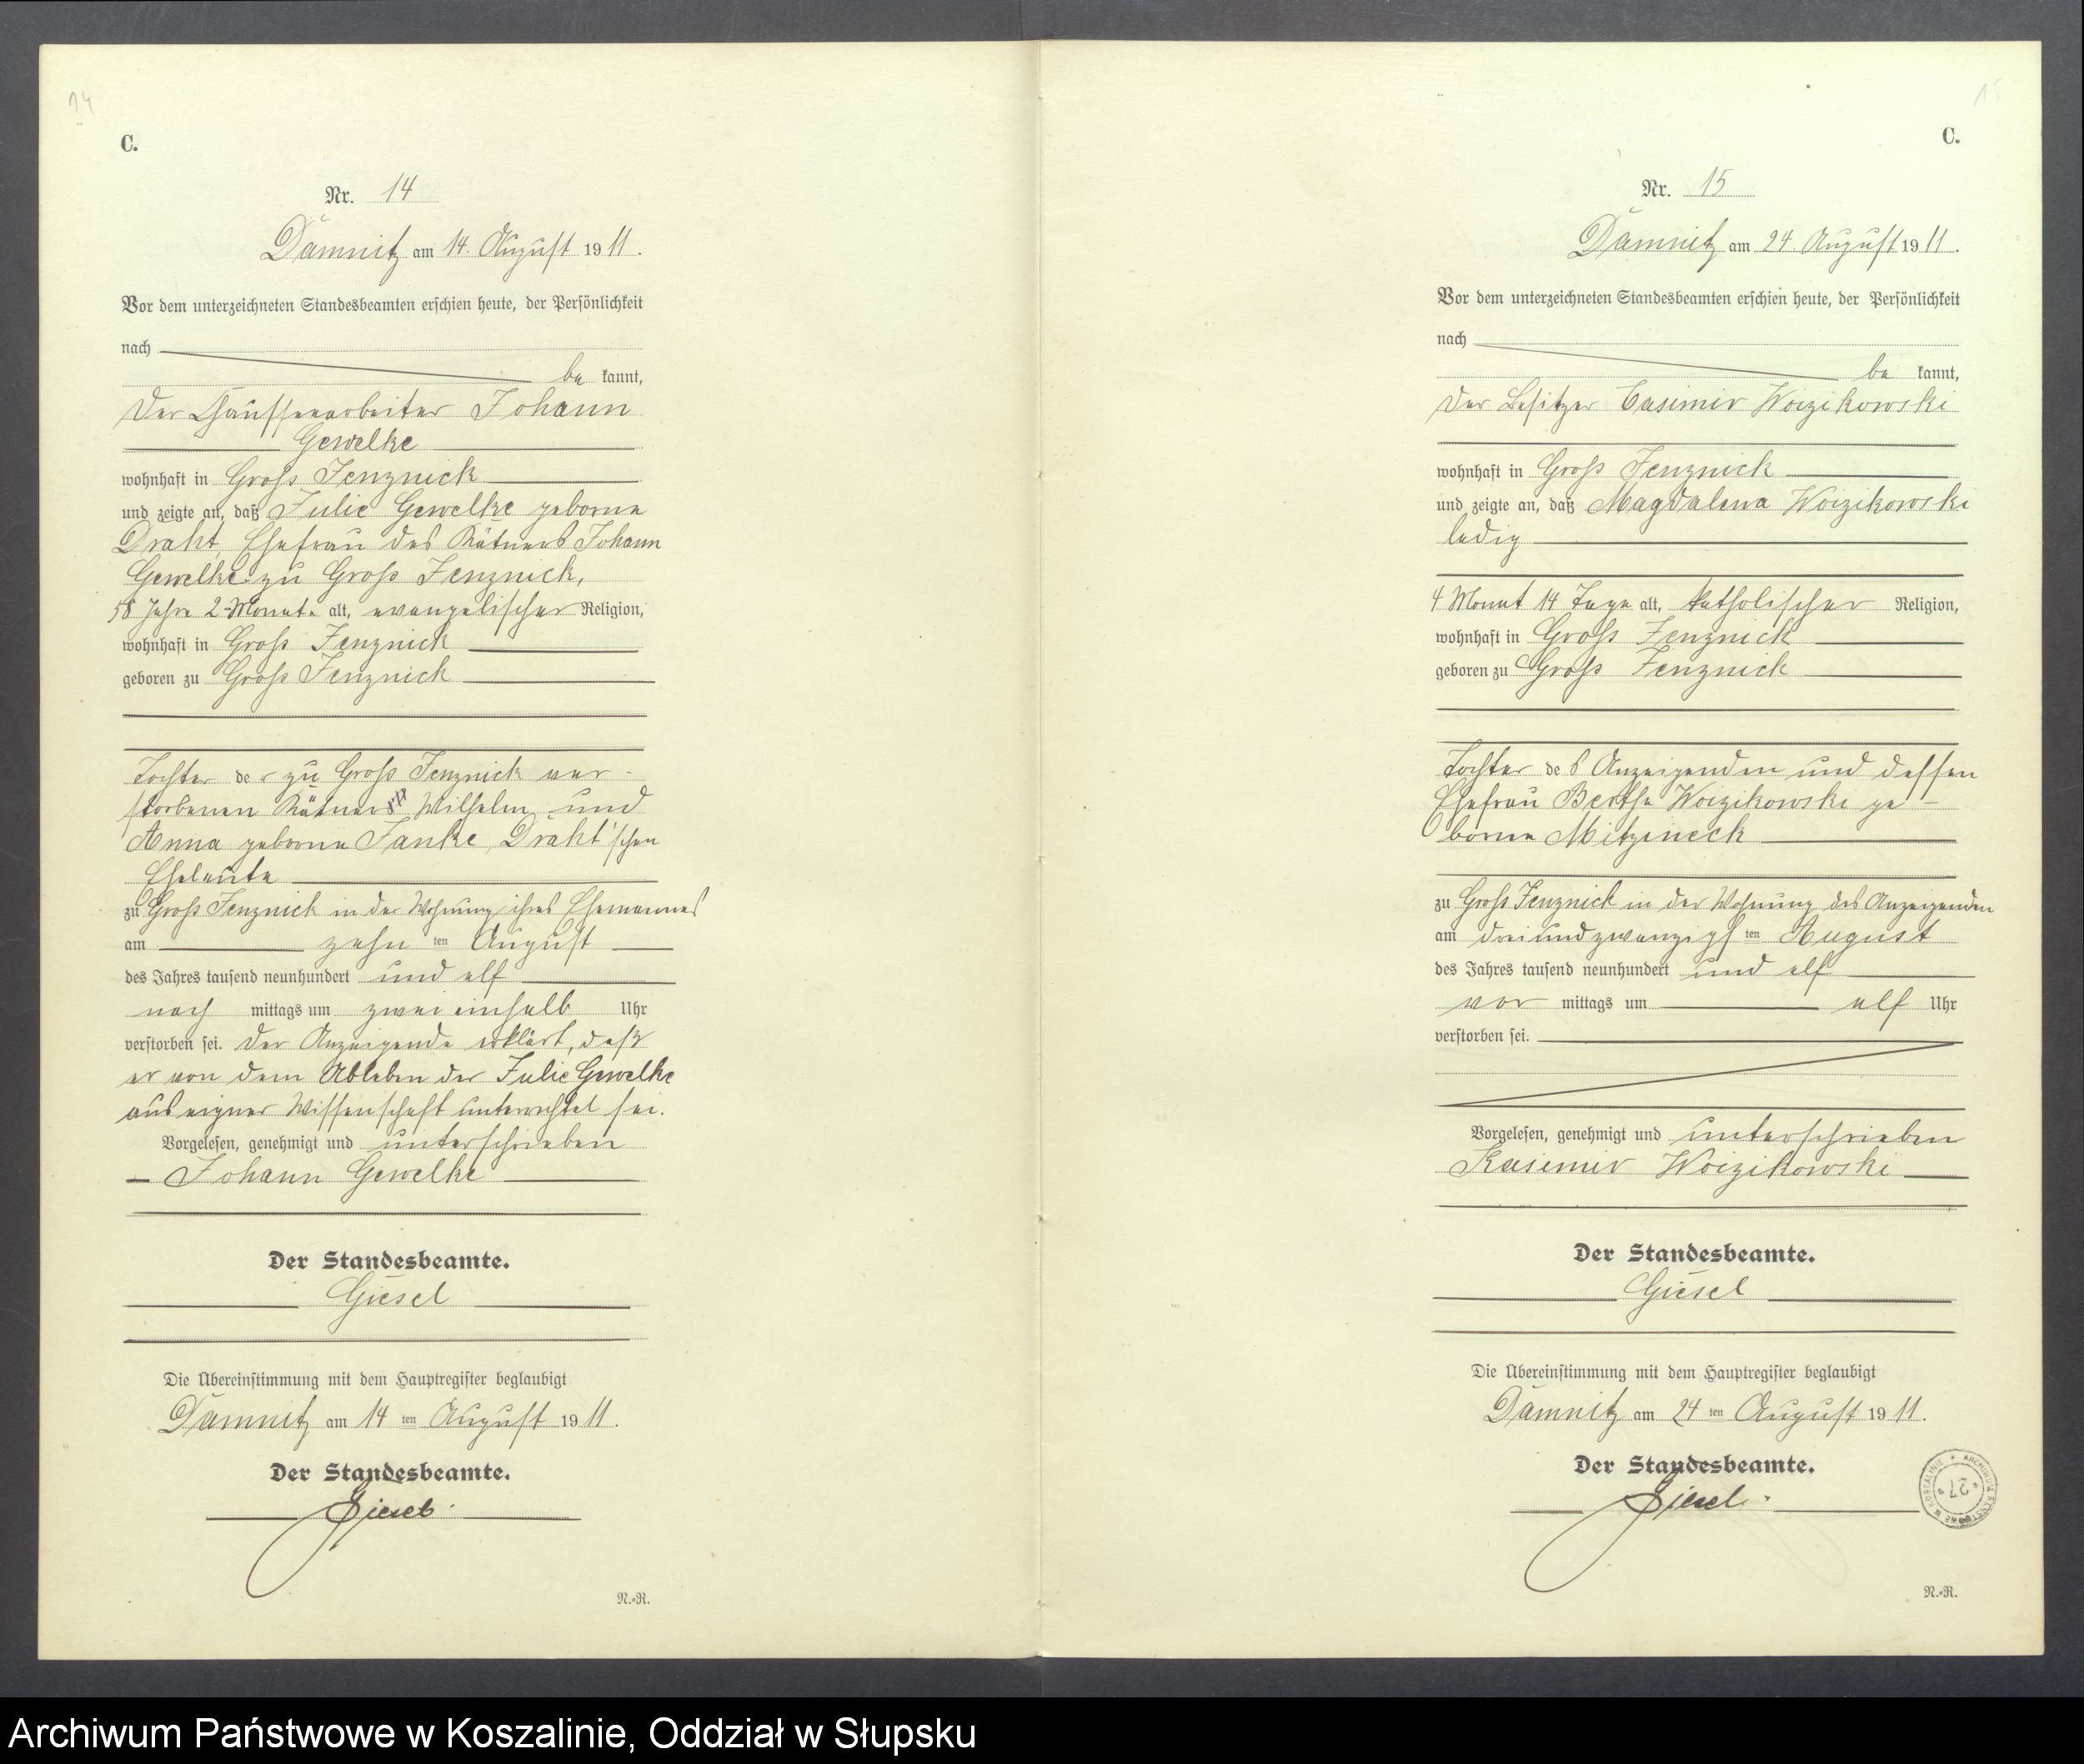 14
C.
Nr. 14
Damnitz am 14. August 1911.
Vor dem unterzeichneten Standesbeamten erschien heute, der Persönlichkeit
nach
be kannt,
der Chausseearbeiter Johann
Gewelke
wohnhaft in Groß Jenznick
und zeigte an, daß Julie Gewelke geborne
Draht, Ehefrau des Kätners Johann
Gewelke zu Groß Jenznick,
58 Jahre 2 Monate alt, evangelischer Religion,
wohnhaft in Groß Jenznick
geboren zu Groß Jenznick
Tochter der zu Groß Jenznick ver-
storbenen Kätner Wilhelm und
Anna geborne Janke, Draht'schen
Eheleute
zu Groß Jenznick in der Wohnung ihres Ehemannes
am zehn ten August
des Jahres tausend neunhundert und elf
nach mittags um zwei einhalb Uhr
verstorben sei. Der Anzeigende erklärt, daß
er von dem Ableben der Julie Gewelke
aus eigner Wissenschaft unterrichtet sei.
Vorgelesen, genehmigt und unterschrieben
Johann Gewelke
Der Standesbeamte.
Giesel
Die Übereinstimmung mit dem Hauptregister beglaubigt
Damnitz am 14 ten August 1911.
Der Standesbeamte.
Giesel.
N.-R.
15
C.
Nr. 15
Damnitz am 24 August 1911.
Vor dem unterzeichneten Standesbeamten erschien heute, der Persönlichkeit
nach
be kannt,
der Besitzer Casimir Woizikowski
wohnhaft in Groß Jenznick
und zeigte an, daß Magdalena Woizikowski
ledig
4 Monat 14 Tage alt, katholischer Religion,
wohnhaft in Groß Jenznick
geboren zu Groß Jenznick
Tochter des Anzeigenden und dessen
Ehefrau Bertha Woizikowski ge-
borne Mitzineck
zu Groß Jenznick in der Wohnung des Anzeigenden
am dreiundzwanzigs ten August
des Jahres tausend neunhundert und elf
vor mittags um elf Uhr
verstorben sei.
Vorgelesen, genehmigt und unterschrieben
Kasimir Woizikowski
Der Standesbeamte.
Giesel
Die Übereinstimmung mit dem Hauptregister beglaubigt
Damnitz am 24 ten August 1911.
Der Standesbeamte.
Giesel.
ARCHIWUM PAŃSTWOWE W KOSZALINIE * 27 *
N.-R.
Archiwum Państwowe w Koszalinie, Oddział w Słupsku